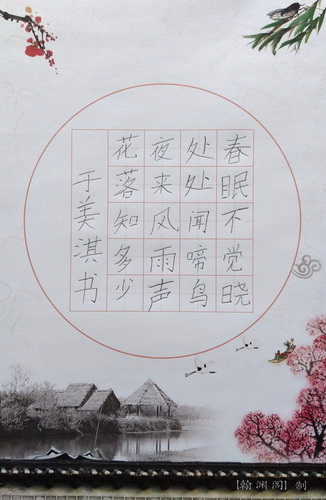 春眠不觉晓
处处闻啼鸟
夜来风雨声
花落知多少
于美淇书
【翰渊阁】制